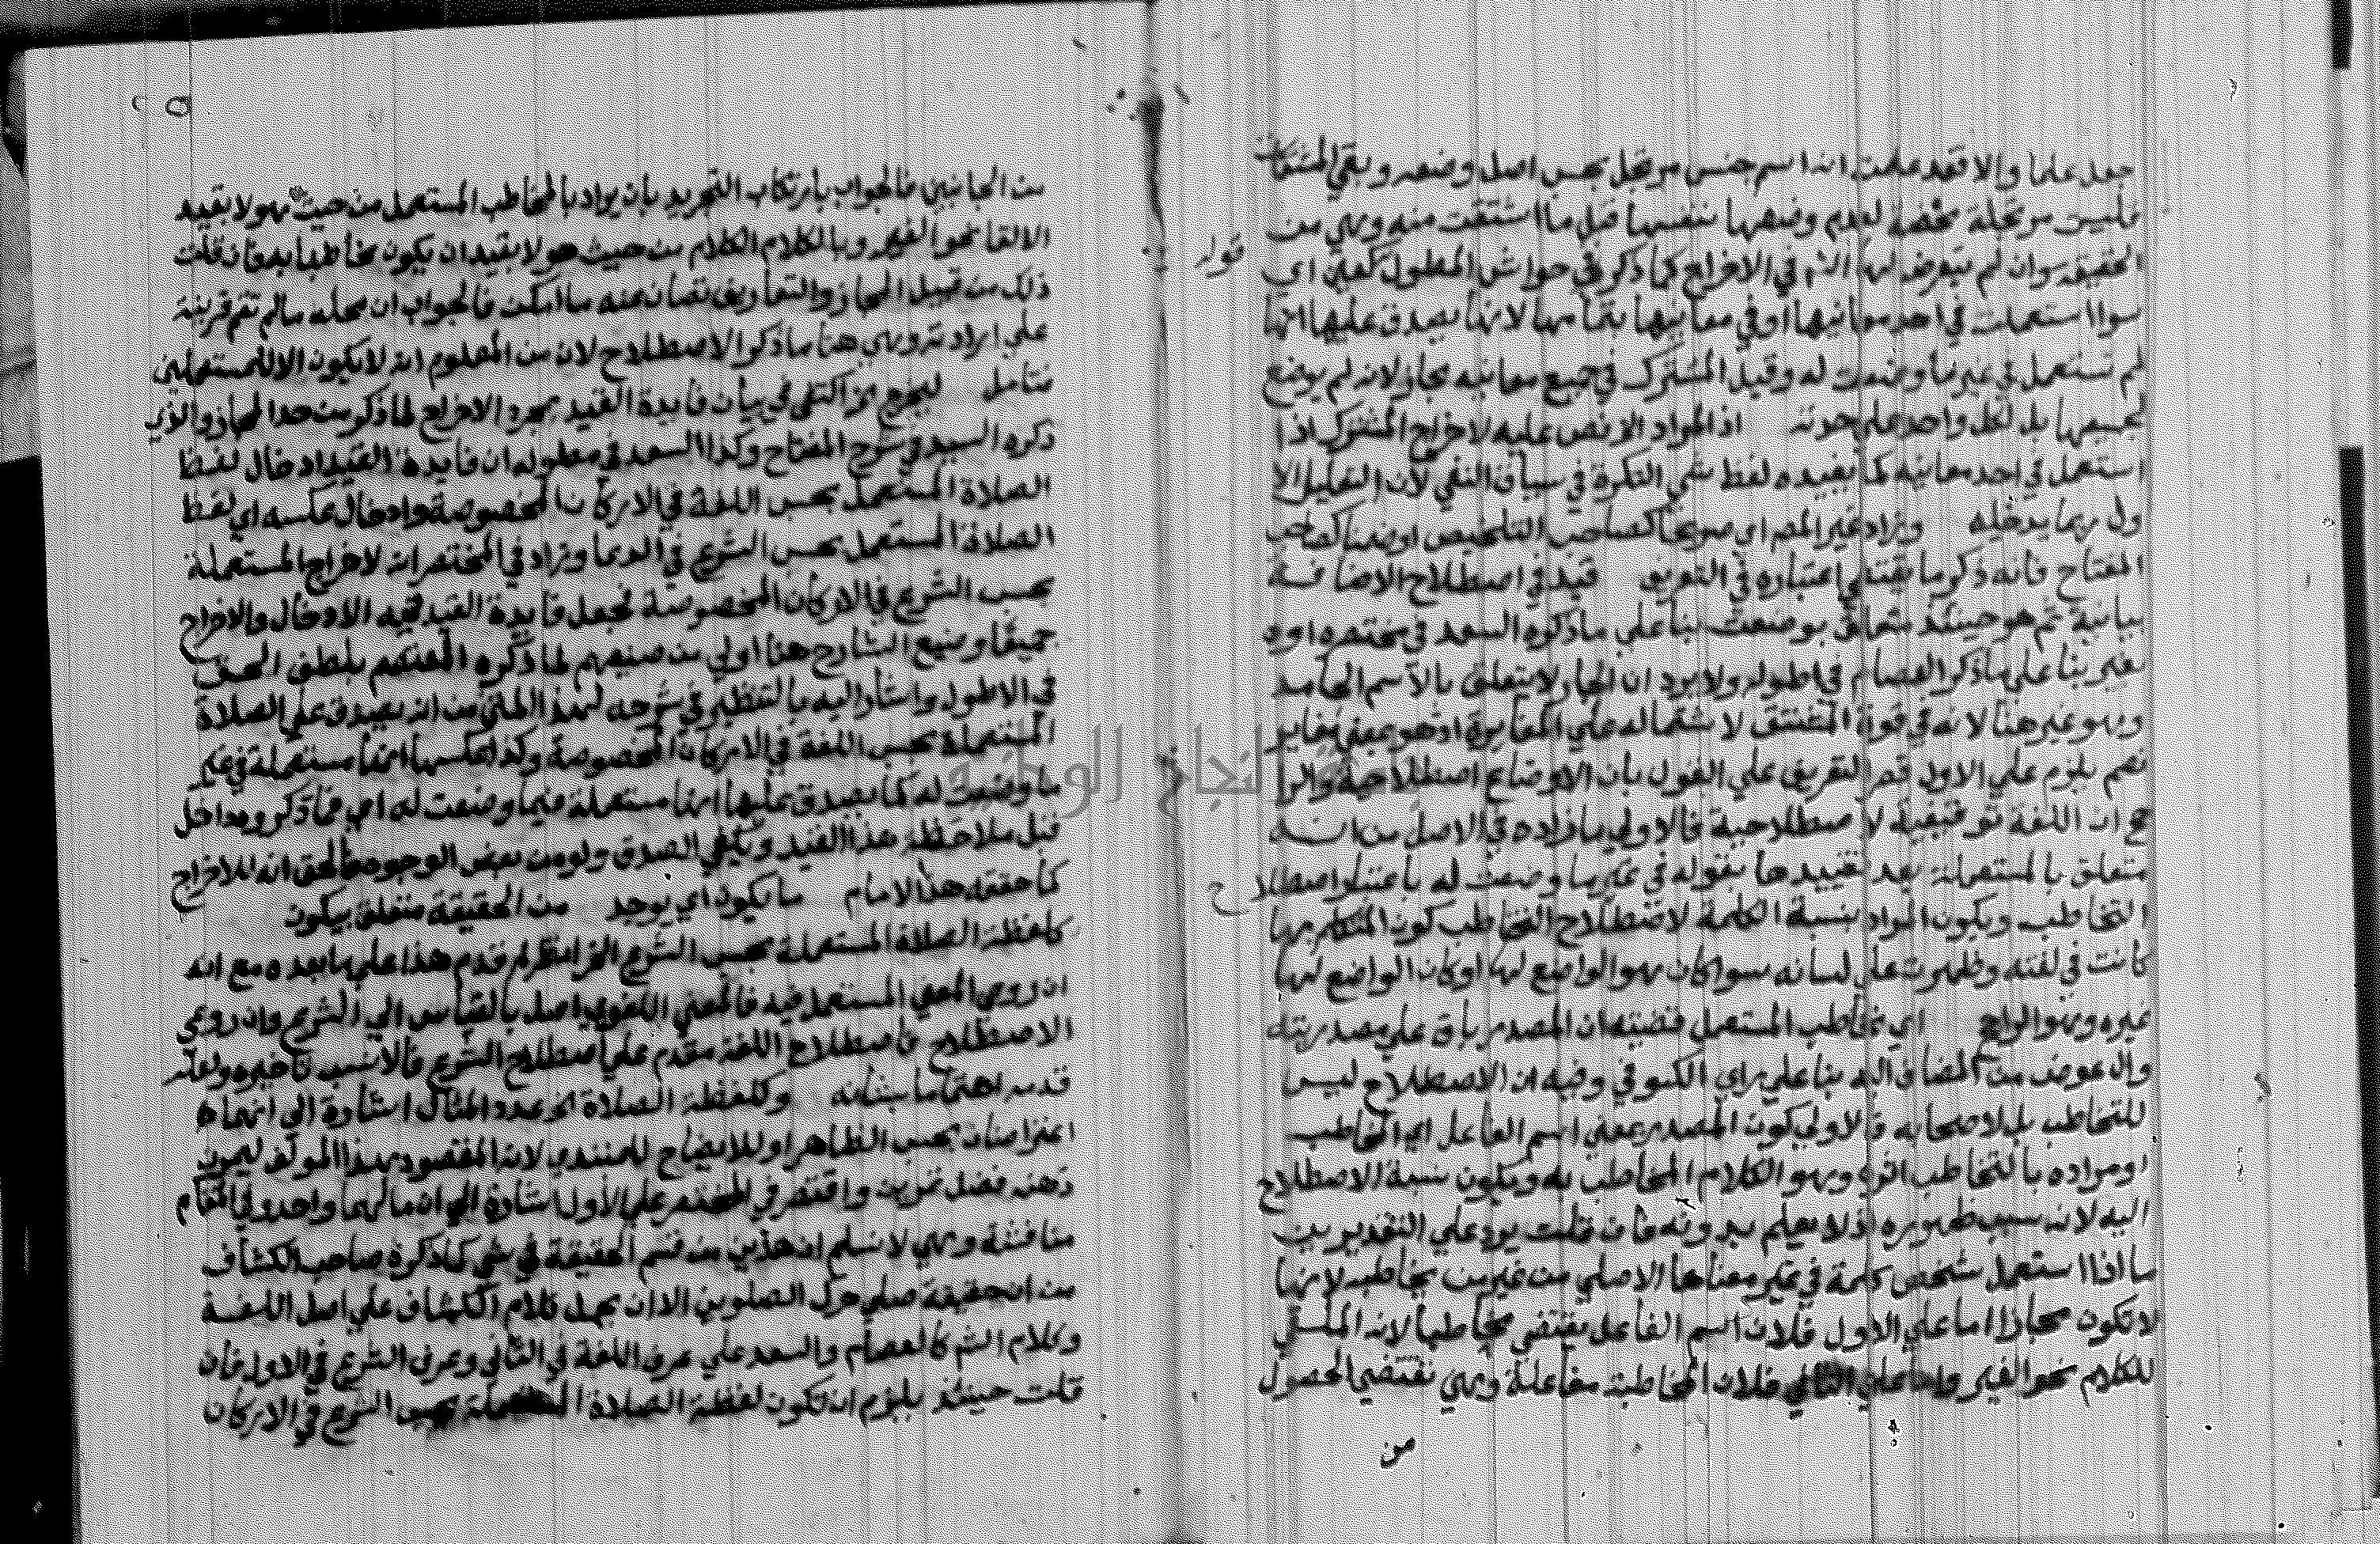 جعل علما والا فقد علمت انه اسم جنس مرتجل بحسب اصل وضعه وبقي المشتقات
فليست مرتجلة محضة لعدم وضعها بنفسها قبل ما اشتقت منه وهي من
الحقيقة وان لم يتعرض لها الشم في الاخراج كما ذكر في حواش المطول كعين اي
سوا استعملت في احد معانيها او في معانيها بتمامها لانها يصدق عليها انها
لم تستعمل في غير ما وضعت له وقيل المشترك في جميع معانيه مجاز لانه لم يوضع
لجميعها بل لكل واحد علي حدته اذ المراد الا نص عليه لاخراج المشترك اذا
استعمل في احد معانيه كما يفيده لفظ شي النكرة في سياق النفي لان التعليل الا
ول بهما يدخله وزاد غير المص اي صريحا كصاحب التلخيص او ضمنا كصاحب
المفتاح فانه ذكر ما يقتضي اعتباره في التعريف قيد في اصطلاح الاضافة
بيانية ثم هو حينئذ متعلق بوضعت بنا علي ما ذكره السعد في مختصره او
بغير بنا علي ما ذكر العصام في اطوله ولا يرد ان الجار لا يتعلق بالاسم الجامد
وهو غير هنا لانه في قوة المشتق لاشتماله علي المغايرة اذ هو بمعني مغاير
نعم يلزم علي الاول قصر التعريف علي القول بان الاوضاع اصطلاحية والرا
جح ان اللغة توقيفية لا اصطلاحية فالاولي ما زاده في الاصل من انه
متعلق بالمستعملة بعد تقييدها بقوله في غير ما وضعت له باعتبار اصطلاح
التخاطب ويكون المراد بنسبة الكلمة لاصطلاح التخاطب كون المتكلم بها
كانت في لغته وظهرت علي لسانه سوا كان هو الواضع لها او كان الواضع لها
غيره وهو الراجح اي تخاطب المستعمل قضيته ان المصدر باق علي مصدريته
وال عوض من المضاف اليه بنا علي راي الكوفي وفيه ان الاصطلاح ليس
للتخاطب بل لاصحابه فالاولي كون المصدر بمعني اسم الفاعل اي المخاطب
او مراده بالتخاطب اثره وهو الكلام المخاطب به ويكون نسبة الاصطلاح
اليه لانه سبب ظهوره اذ لا يعلم بدونه فان قلت يرد علي التقديرين
ما اذا استعمل شخص كلمة في غير معناها الاصلي من غير من يخاطبه لانها
لا تكون مجازا اما علي الاول فلان اسم الفاعل يقتضي مخاطبا لانه الملقي
للكلام نحو الغير واما علي الثاني فلان المخاطبة مفاعلة وهي تقتضي الحصول
من
من الجانبين فالجواب بارتكاب التجريد بان يراد بالمخاطب المستعمل من حيث هو لا بقيد
الالقا نحو الغير وبالكلام الكلام من حيث هو لا بقيد ان يكون مخاطبا به فان قلت
ذلك من قبيل المجاز والتعاريف تصان عنه ما امكن فالجواب ان محله ما لم تقم قرينة
علي ارادته وهي هنا ما ذكر الاصطلاح لان من المعلوم انه لا يكون الا للمستعملين
فتامل ليخرج الخ اكتفي في بيان فايدة القيد بمجرد الاخراج لما ذكر من حد المجاز والذي
ذكره السيد في شرح المفتاح وكذا السعد في مطوله ان فايدة القيد ادخال لفظ
الصلاة المستعمل بحسب اللغة في الاركان المخصوصة وادخال عكسه اي لفظ
الصلاة المستعمل بحسب الشرع في الدعا وزاد في المختصر انه لاخراج المستعملة
بحسب الشرع في الاركان المخصوصة فجعل فايدة القيد فيه الادخال والاخراج
جميعا وصنيع الشارح هنا اولي من صنيعهم لما ذكره المتكلم بلطف الحق
في الاطول واشار اليه بالتنظير في شرحه لهذا المتن من انه يصدق علي الصلاة
المستعملة بحسب اللغة في الاركان المخصوصة وكذا عكسها انها مستعملة في غير
ما وضعت له كما يصدق عليها انها مستعملة فيما وضعت له اي فما ذكروه داخل
قبل ملاحظة هذا القيد ويكفي الصدق ولو من بعض الوجوه فالحق انه للاخراج
كما حققه هذا الامام ما يكون اي يوجد من الحقيقة متعلق بيكون
كلفظة الصلاة المستعملة بحسب الشرع الخ انظر لم قدم هذا علي ما بعده مع انه
ان روعي المعني المستعمل فيه فالمعني اللغوي اصل بالقياس الي الشرع وان روعي
الاصطلاح فاصطلاح اللغة مقدم علي اصطلاح الشرع فالانسب تاخيره ولعله
قدمه اهتماما بشانه وكلفظة الصلاة الخ عدد المثال اشارة الي انهما
اعتراضان بحسب الظاهر او للايضاح للمبتدي لانه المقصود بهذا المولف ليمرن
ذهنه فضل تمرين واقتصر في المختصر علي الاول اشارة الي ان مالهما واحد وفي المقام
مناقشة وهي لا نسلم ان هذين من قسم الحقيقة في شي كما ذكره صاحب الكشاف
من ان حقيقة صلي حرك الصلوين الا ان يحمل كلام الكشاف علي اصل اللغة
وكلام الشم كالعصام والسعد علي عرف اللغة في الثاني وعرف الشرع في الاول فان
قلت حينئذ يلزم ان تكون لفظة الصلاة المستعملة بحسب الشرع في الاركان
جامعة النجاح الوطنية